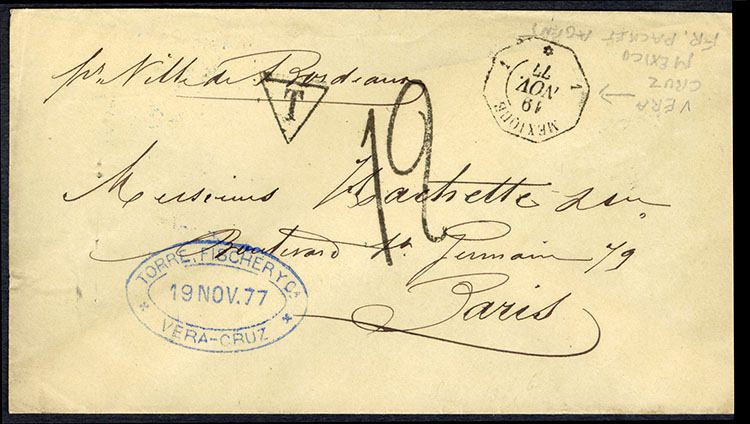 pr Ville de Bordeaux
T
MEXIQUE
19
NOV
77
1 * 1
VERA
CRUZ
MEXICO
FR. PACKET AGENT
12
Messieurs Hachette &
Boulevard St. Germain 79
Paris
TORRE, FISCHER Y CA
19 NOV. 77
* VERA-CRUZ *